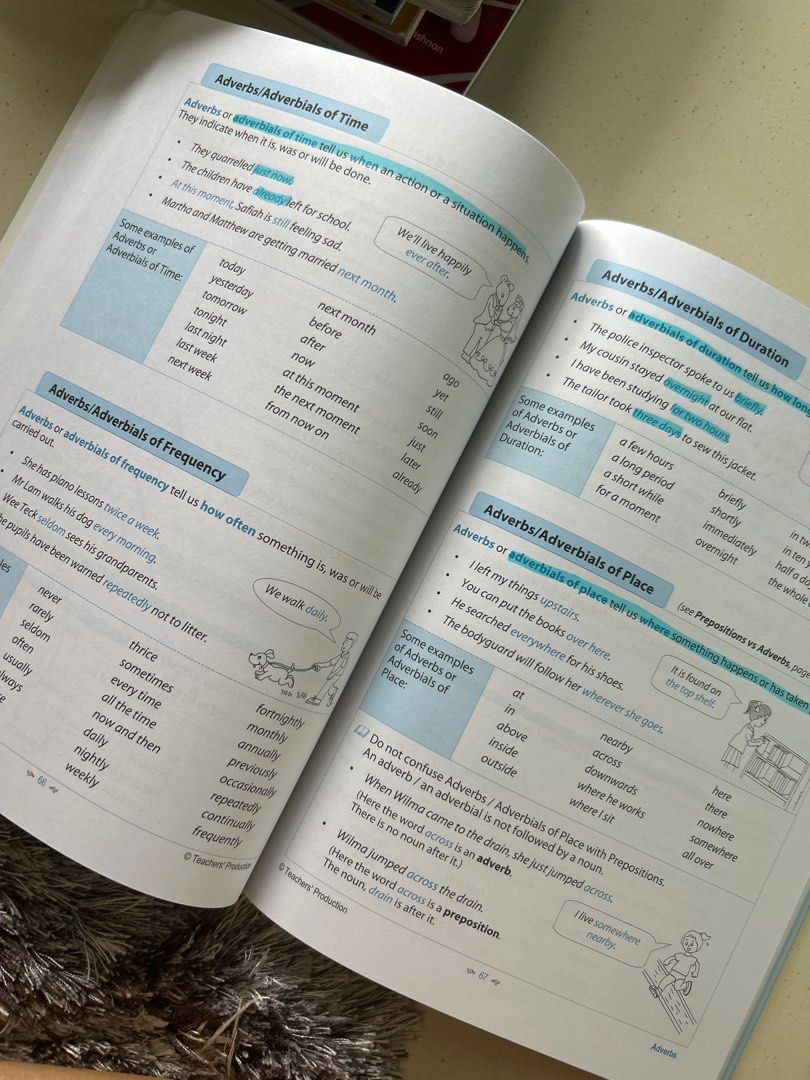 ishnan
Adverbs/Adverbials of Time
Adverbs or adverbials of time tell us when an action or a situation happens.
They indicate when it is, was or will be done.
• They quarrelled just now.
• The children have already left for school.
• At this moment, Safiah is still feeling sad.
• Martha and Matthew are getting married next month.
We'll live happily
ever after.
Some examples of
Adverbs or
Adverbials of Time:
today
yesterday
tomorrow
tonight
last night
last week
next week
next month
before
after
now
at this moment
the next moment
from now on
ago
yet
still
soon
just
later
already
Adverbs/Adverbials of Frequency
Adverbs or adverbials of frequency tell us how often something is, was or will be
carried out.
• She has piano lessons twice a week.
Mr Lam walks his dog every morning.
Wee Teck seldom sees his grandparents.
he pupils have been warned repeatedly not to litter.
We walk daily.
les
never
rarely
seldom
often
usually
always
thrice
sometimes
every time
all the time
now and then
daily
nightly
weekly
fortnightly
monthly
annually
previously
occasionally
repeatedly
continually
frequently
66
© Teachers' Production
Adverbs/Adverbials of Duration
Adverbs or adverbials of duration tell us how lon
• The police inspector spoke to us briefly.
• My cousin stayed overnight at our flat.
• I have been studying for two hours.
• The tailor took three days to sew this jacket.
Some examples
of Adverbs or
Adverbials of
Duration:
a few hours
a long period
a short while
for a moment
briefly
shortly
immediately
overnight
in tw
in ten
half a d
the whole
Adverbs/Adverbials of Place
(see Prepositions vs Adverbs page
Adverbs or adverbials of place tell us where something happens or has taken
• I left my things upstairs.
• You can put the books over here.
• He searched everywhere for his shoes.
• The bodyguard will follow her wherever she goes.
It is found on
the top shelf.
Some examples
of Adverbs or
Adverbials of
Place:
at
in
above
inside
outside
nearby
across
downwards
where he works
where I sit
here
there
nowhere
somewhere
all over
Do not confuse Adverbs / Adverbials of Place with Prepositions.
An adverb / an adverbial is not followed by a noun.
• When Wilma came to the drain, she just jumped across.
(Here the word across is an adverb.
There is no noun after it.)
• Wilma jumped across the drain.
(Here the word across is a preposition.
The noun, drain is after it.
I live somewhere
nearby.
© Teachers' Production
67
Adverbs